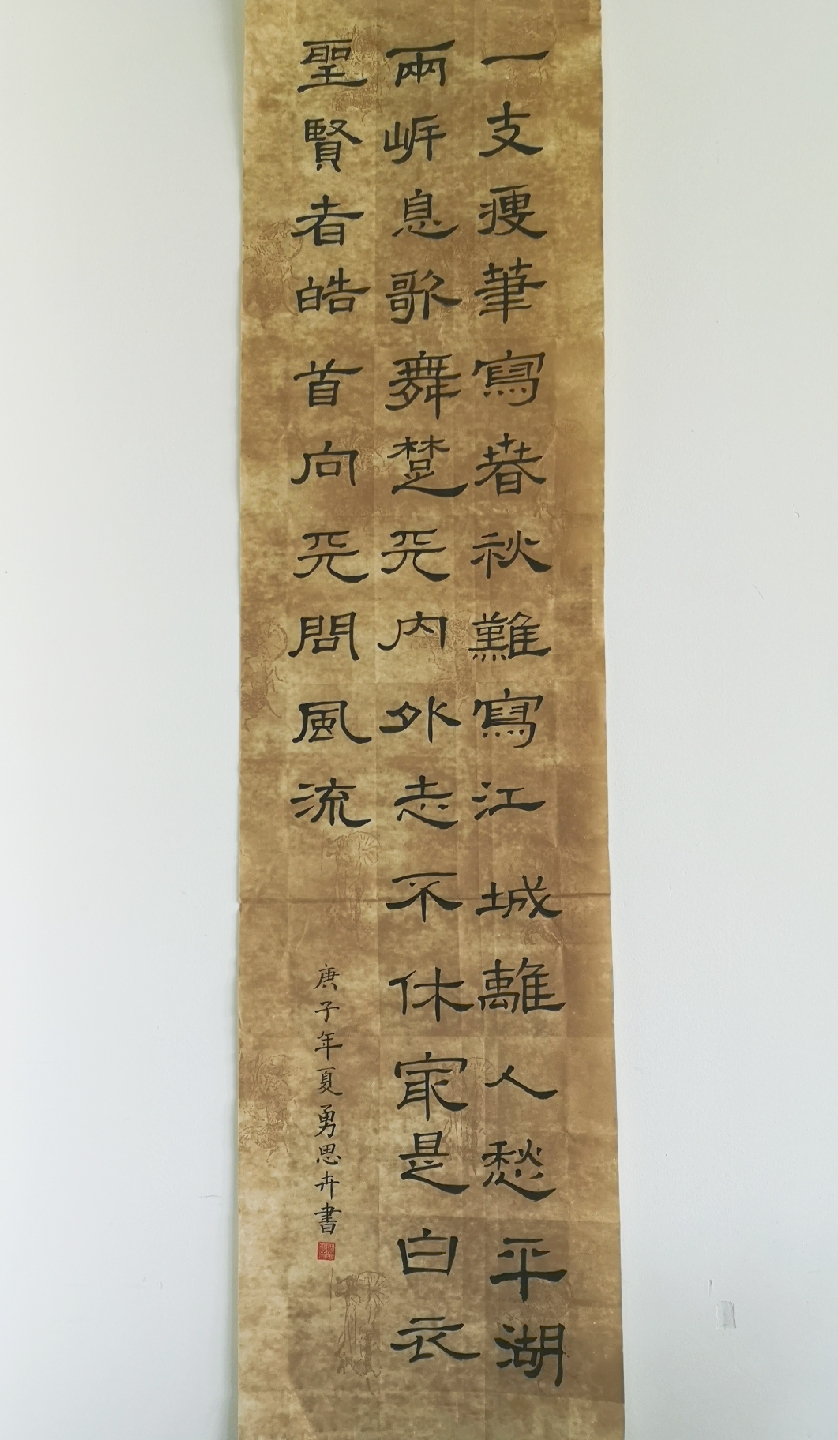 一支瘦筆寫春秋難寫江城離人愁平湖
兩岸息歌舞楚天內外志不休最是白衣
聖賢者皓首向天問風流
庚子年夏勇思卉書